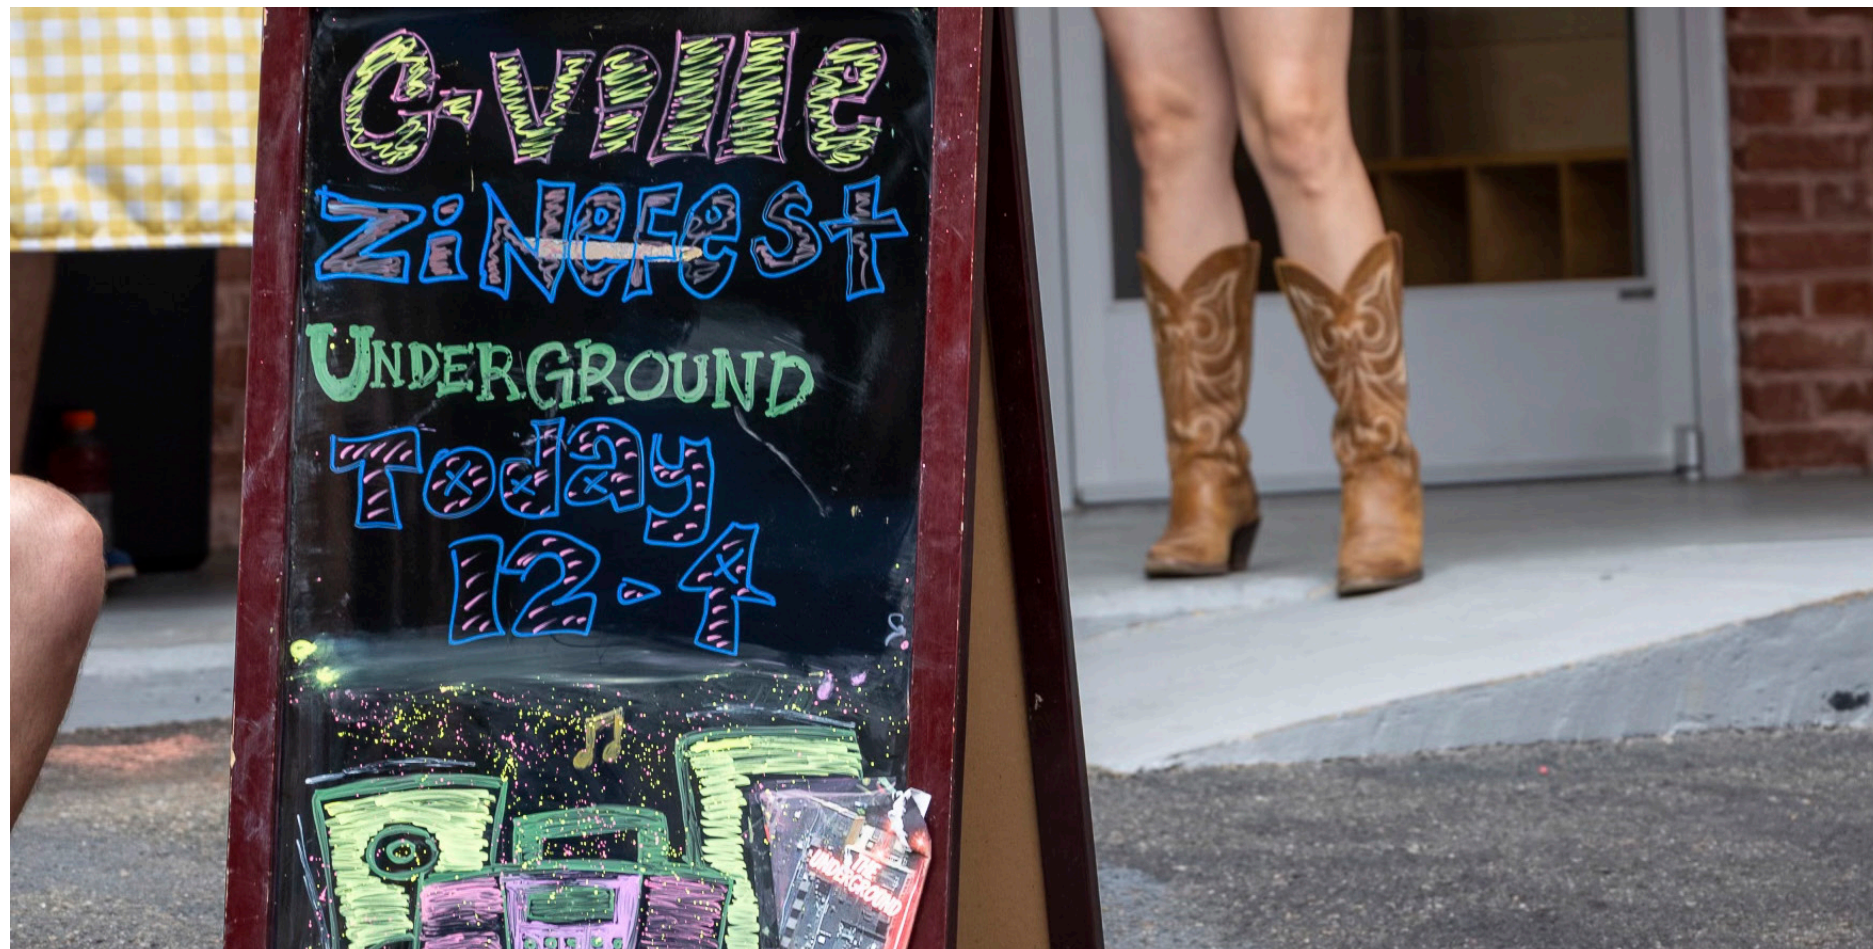 C-ville
ZiNefest
UNDERGROUND
Today
12-4
THE
UNDERGROUND